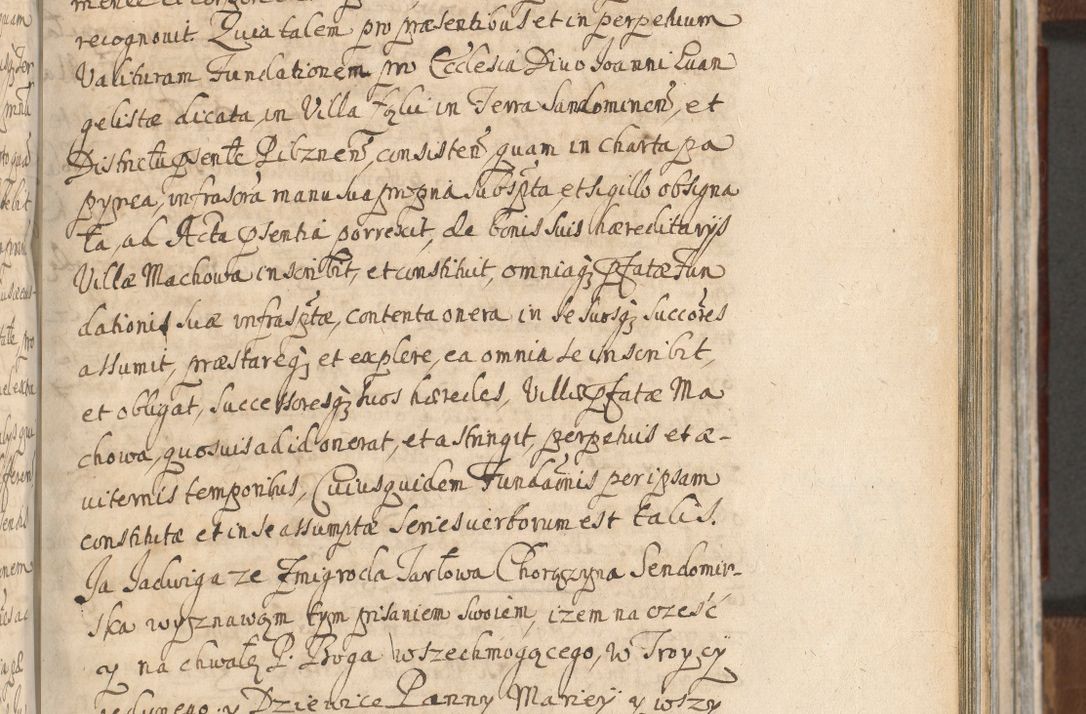 recognovit. Quia talem pro præsentibus et in perpetuum
Valituram Fundationem pro Ecclesia Divo Joanni Euan
gelistæ dicata, in Villa in Terra Sandominen, et
Districtu psente Pilznen, consisten, quam in charta pa
pyrea, infrascra manu sua propria subspta, et sigillo obsigna
ta, ad Acta psentia porrexit, de bonis suis hæreditarijs
Villæ Machowa inscribit, et constituit, omniaqz pfatæ Fun
dationis suæ infrasptæ, contenta onera in se suosqz succores
assumit, præstareqz et explere, ea omnia se inscribit,
et obligat, successoresqz suos hæredes, Villæ pfatæ Ma
chowa, quosuis ad id onerat, et astringit, perpetuis et æ-
uiternis temporibus, Cuiusquidem Fundaonis per ipsam
constitutæ et in se assumptæ series uerborum est talis.
Ja Jadwiga ze Zmigroda Tarłowa Chorązyna Sendomir-
ska wyznawam tym pisaniem swoiem, izem na cześć
y na chwałę P. Boga wszechmogącego, w Troycy
jedynego, y Dziewice Panny Mariey y wszy